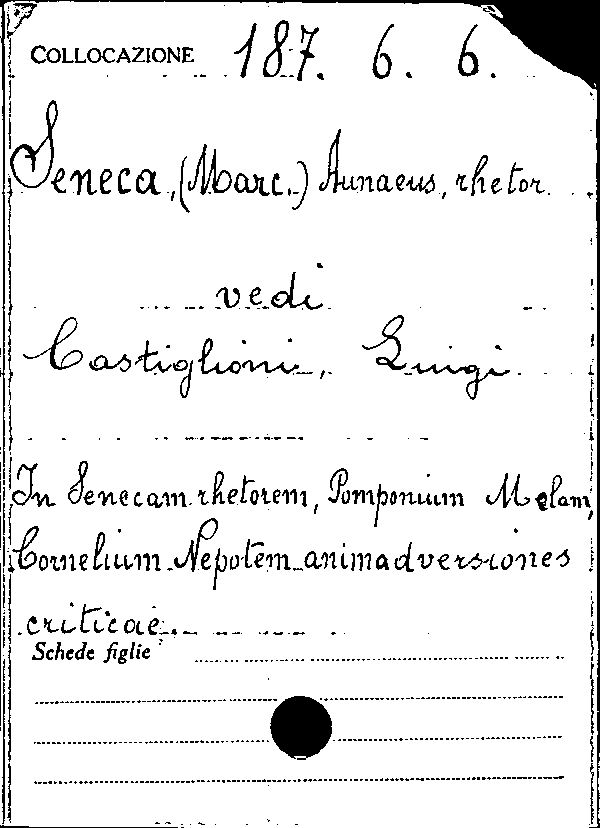 COLLOCAZIONE 187. 6. 6.
Seneca, (Marc.) Annaeus, rhetor
vedi
Castiglioni, Luigi
In Senecam rhetorem, Pomponium Melam,
Cornelium Nepotem animadversiones
criticae.
Schede figlie